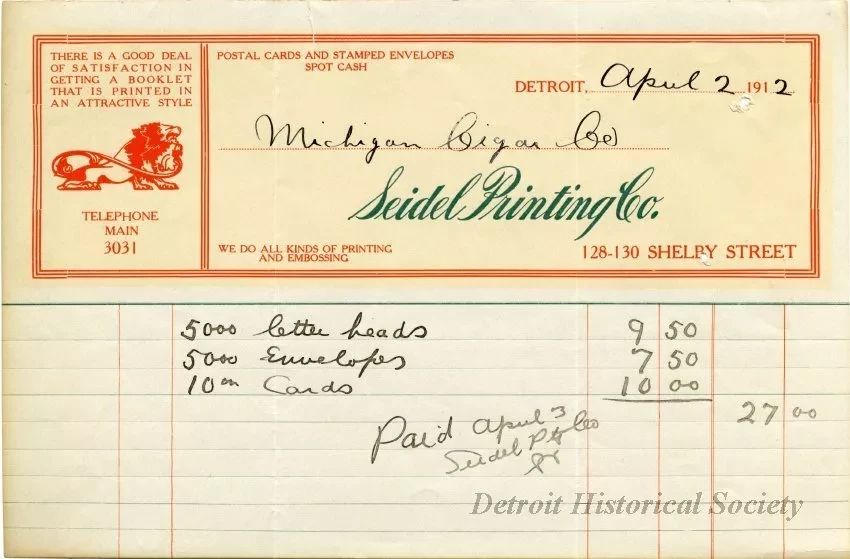 THERE IS A GOOD DEAL
OF SATISFACTION IN
GETTING A BOOKLET
THAT IS PRINTED IN
AN ATTRACTIVE STYLE
TELEPHONE
MAIN
3031
POSTAL CARDS AND STAMPED ENVELOPES
SPOT CASH
DETROIT, April 2 1912
Michigan Cigar Co
Seidel Printing Co.
WE DO ALL KINDS OF PRINTING
AND EMBOSSING
128-130 SHELBY STREET
5000 letter heads 9 50
5000 Envelopes 7 50
10 00 Cards 10 00
27 00
Paid April 3
Seidel Ptg Co
Detroit Historical Society